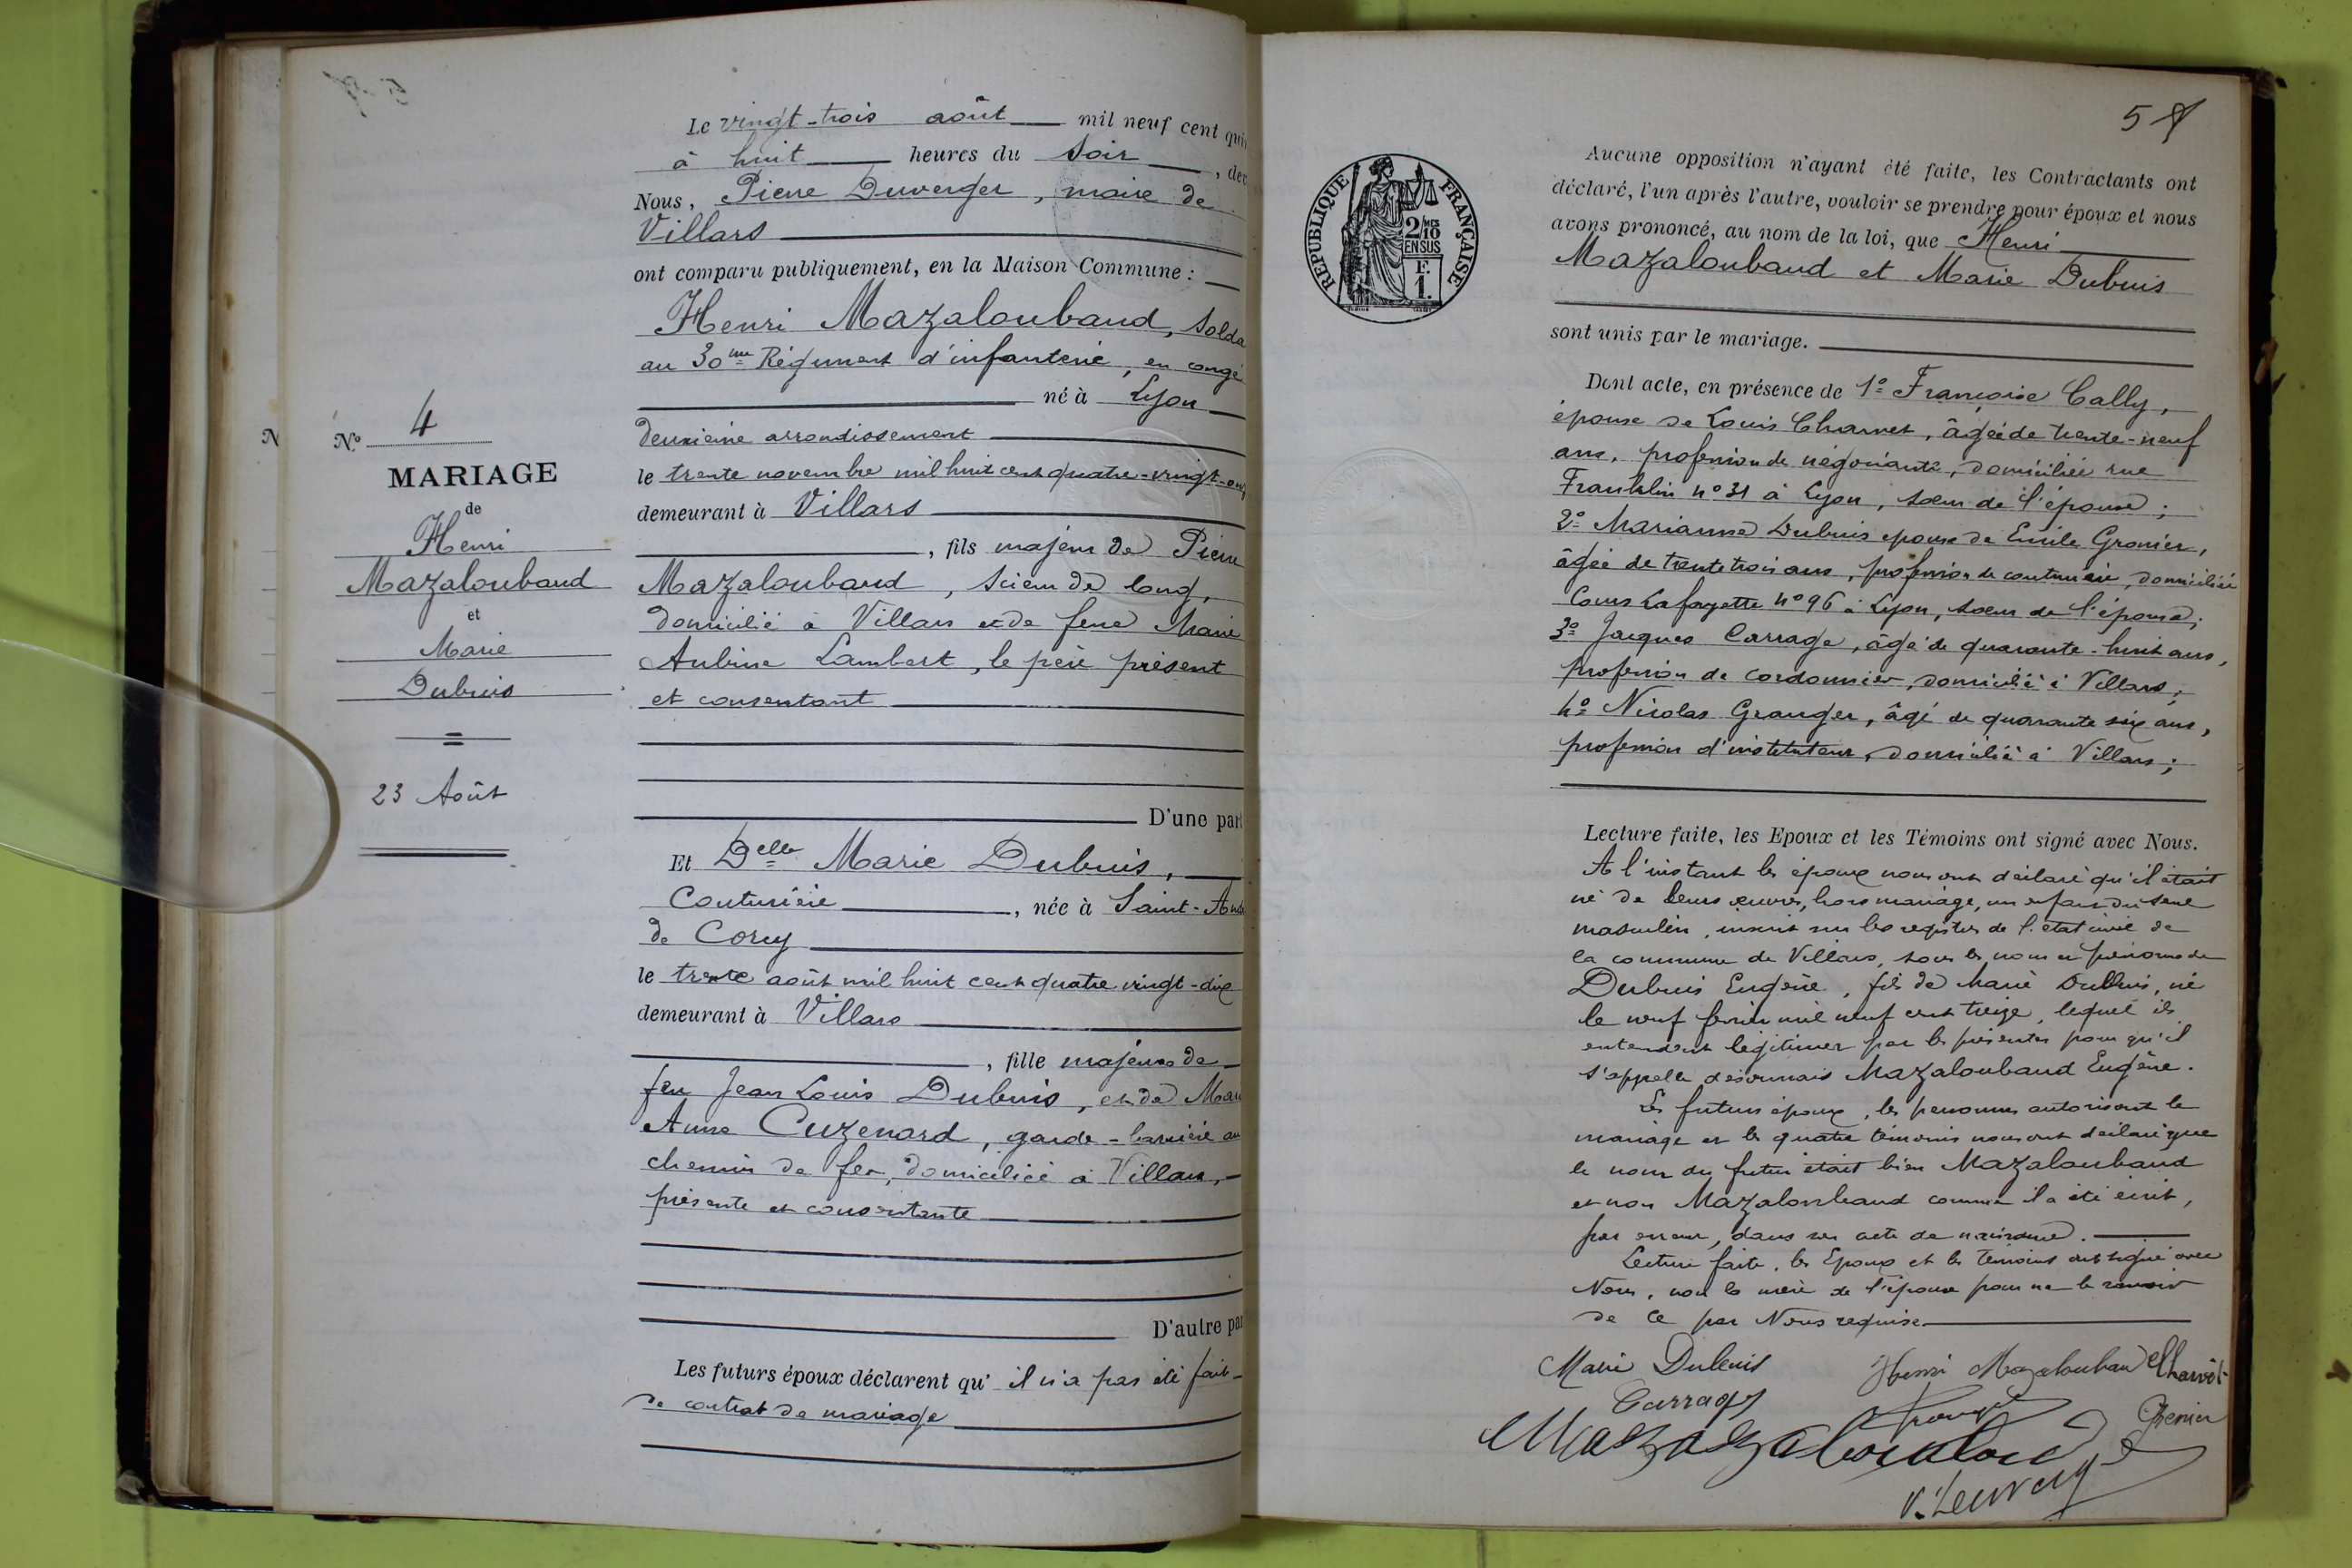 N
Nº 4
MARIAGE
de
Henri
Mazaloubaud
et
Marie
Dubuis
23 Août
Le vingt-trois août mil neuf cent qui
à huit heures du soir, dev
Nous, Pierre Duverger, maire de
Villars
ont comparu publiquement, en la Maison Commune :
Henri Mazaloubaud, Solda
au 30me Régiment d'infanterie, en congé
né à Lyon
deuxième arrondissement
le trente novembre mil huit cent quatre-vingt-on
demeurant à Villars
, fils majeur de Pierre
Mazaloubaud, scieur de long,
domicilié à Villars et de feue Marie
Aubine Lambert, le père présent
et consentant
D'une part
Et Delle Marie Dubuis,
Couturière, née à Saint-And
de Corcy
le trente août mil huit cent quatre vingt-dix
demeurant à Villars
, fille majeure de
feu Jean Louis Dubuis, et de Mari
Anne Cuzenard, garde-barrière au
chemin de fer, domiciliée à Villars,
présente et consentante
D'autre par
Les futurs époux déclarent qu' il n'a pas été fait
de contrat de mariage
5
REPUBLIQUE FRANÇAISE
2/10
EN SUS
F.
1.
Aucune opposition n'ayant été faite, les Contractants ont
déclaré, l'un après l'autre, vouloir se prendre pour époux et nous
avons prononcé, au nom de la loi, que Henri
Mazaloubaud et Marie Dubuis
sont unis par le mariage.
Dont acte, en présence de 1º Françoise Cally,
épouse de Louis Charvet, âgée de trente-neuf
ans, profession de négociante, domiciliée rue
Franklin nº 31 à Lyon, soeur de l'épouse ;
2º Marianne Dubuis epouse de Emile Gronier,
âgée de trente trois ans, profession de couturière, domiciliée
Cours Lafayette nº 96 à Lyon, soeur de l'épouse ;
3º Jacques Carrage, âgé de quarante-huit ans,
profession de cordonnier, domicilié à Villars ;
4º Nicolas Granger, âgé de quarante six ans,
profession d'instituteur, domicilié à Villars ;
Lecture faite, les Epoux et les Témoins ont signé avec Nous.
A l'instant les époux nous ont déclaré qu'il était
né de leurs œuvres, hors mariage, un enfant du sexe
masculin, inscrit sur les registres de l'état civil de
la commune de Villars, sous les nom et prénoms de
Dubuis Eugène, fils de Marie Dubuis, né
le neuf février mil neuf cent treize, lequel ils
entendent légitimer par les présentes pour qu'il
s'appelle désormais Mazaloubaud Eugène.
Les futurs époux, les personnes autorisant le
mariage et les quatre témoins nous ont déclaré que
le nom du futur était bien Mazaloubaud
et non Mazalonbaud comme il a été écrit,
par erreur, dans son acte de naissance.
Lecture faite, les Epoux et les témoins ont signé avec
Nous, non la mère de l'épouse pour ne le savoir
de ce par Nous requise
Marie Dubuis
Henri Mazaloubau
Charvet
Carrage
Granger